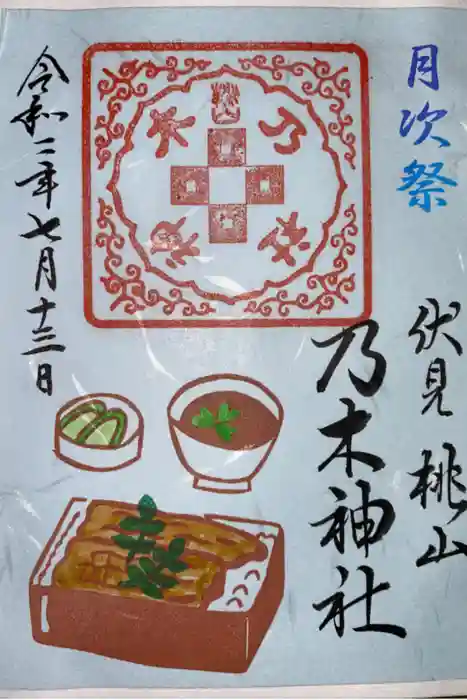 月次祭
伏見 桃山
乃木神社
令和二年七月十三日
乃木神社